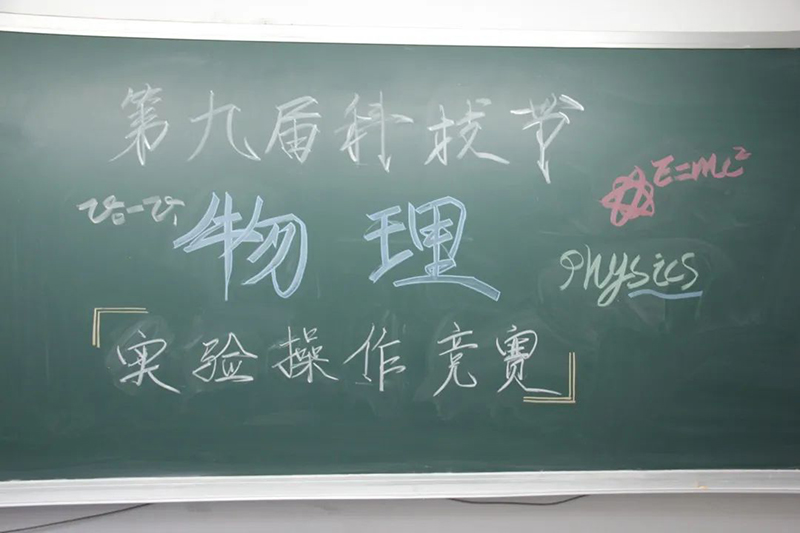 第九届科技节
E=mc²
v₀-v₁
物理
Physics
「实验操作竞赛」